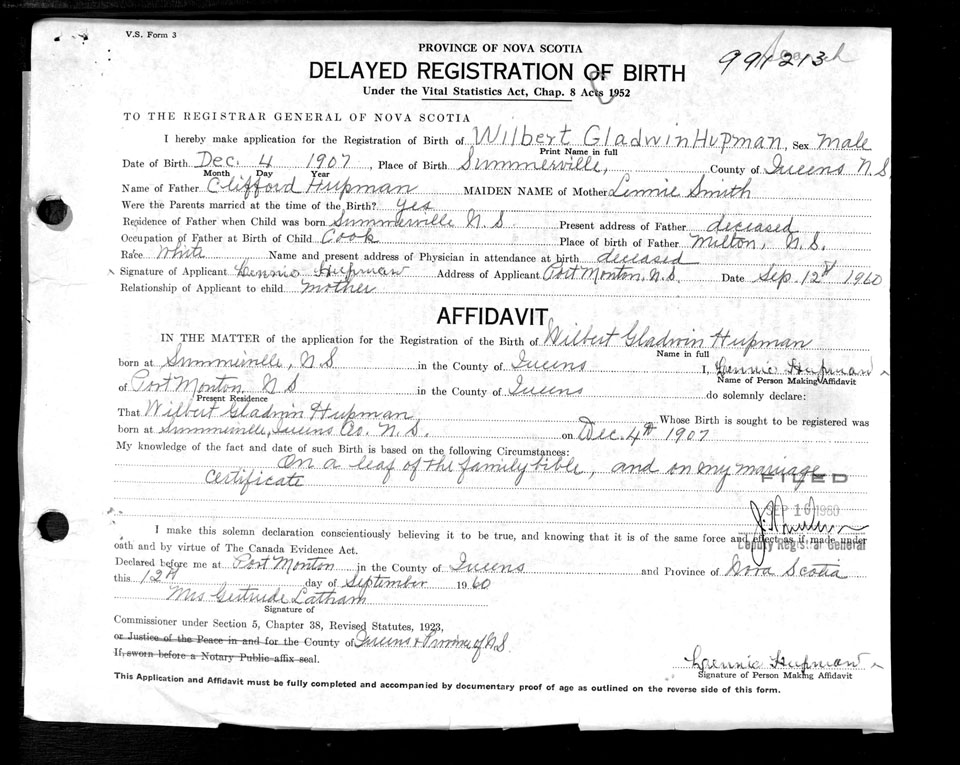 V.S. Form 3
PROVINCE OF NOVA SCOTIA
991213
DELAYED REGISTRATION OF BIRTH
Under the Vital Statistics Act, Chap. 8 Acts 1952
TO THE REGISTRAR GENERAL OF NOVA SCOTIA
I hereby make application for the Registration of Birth of Wilbert Gladwin Hupman, Sex Male
Print Name in full
Date of Birth Dec. 4 1907, Place of Birth Summerville, County of Queens N.S.
Month Day Year
Name of Father Clifford Hupman MAIDEN NAME of Mother Lennie Smith
Were the Parents married at the time of the Birth? yes
Residence of Father when Child was born Summerville N.S. Present address of Father deceased
Occupation of Father at Birth of Child Cook Place of birth of Father Milton, N.S.
Race White Name and present address of Physician in attendance at birth deceased
Signature of Applicant Lennie Hupman Address of Applicant Port Monton, N.S. Date Sep. 12th 1960
Relationship of Applicant to child mother
AFFIDAVIT
IN THE MATTER of the application for the Registration of the Birth of Wilbert Gladwin Hupman
Name in full
born at Summerville, N S in the County of Queens I, Lennie Hupman
Name of Person Making Affidavit
of Port Monton, N S in the County of Queens do solemnly declare:
Present Residence
That Wilbert Gladwin Hupman Whose Birth is sought to be registered was
born at Summerville, Queens Co. N.S. on Dec. 4th 1907
My knowledge of the fact and date of such Birth is based on the following Circumstances:
On a leaf of the family bible, and on my marriage
certificate
FILED
SEP 16 1960
I make this solemn declaration conscientiously believing it to be true, and knowing that it is of the same force and effect as if made under
oath and by virtue of The Canada Evidence Act.
Deputy Registrar General
Declared before me at Port Monton in the County of Queens and Province of Nova Scotia
this 12th day of September 1960
Mrs Gertrude Latham
Signature of
Commissioner under Section 5, Chapter 38, Revised Statutes, 1923,
or Justice of the Peace in and for the County of Queens & Province of N.S.
If sworn before a Notary Public affix seal.
Lennie Hupman
Signature of Person Making Affidavit
This Application and Affidavit must be fully completed and accompanied by documentary proof of age as outlined on the reverse side of this form.